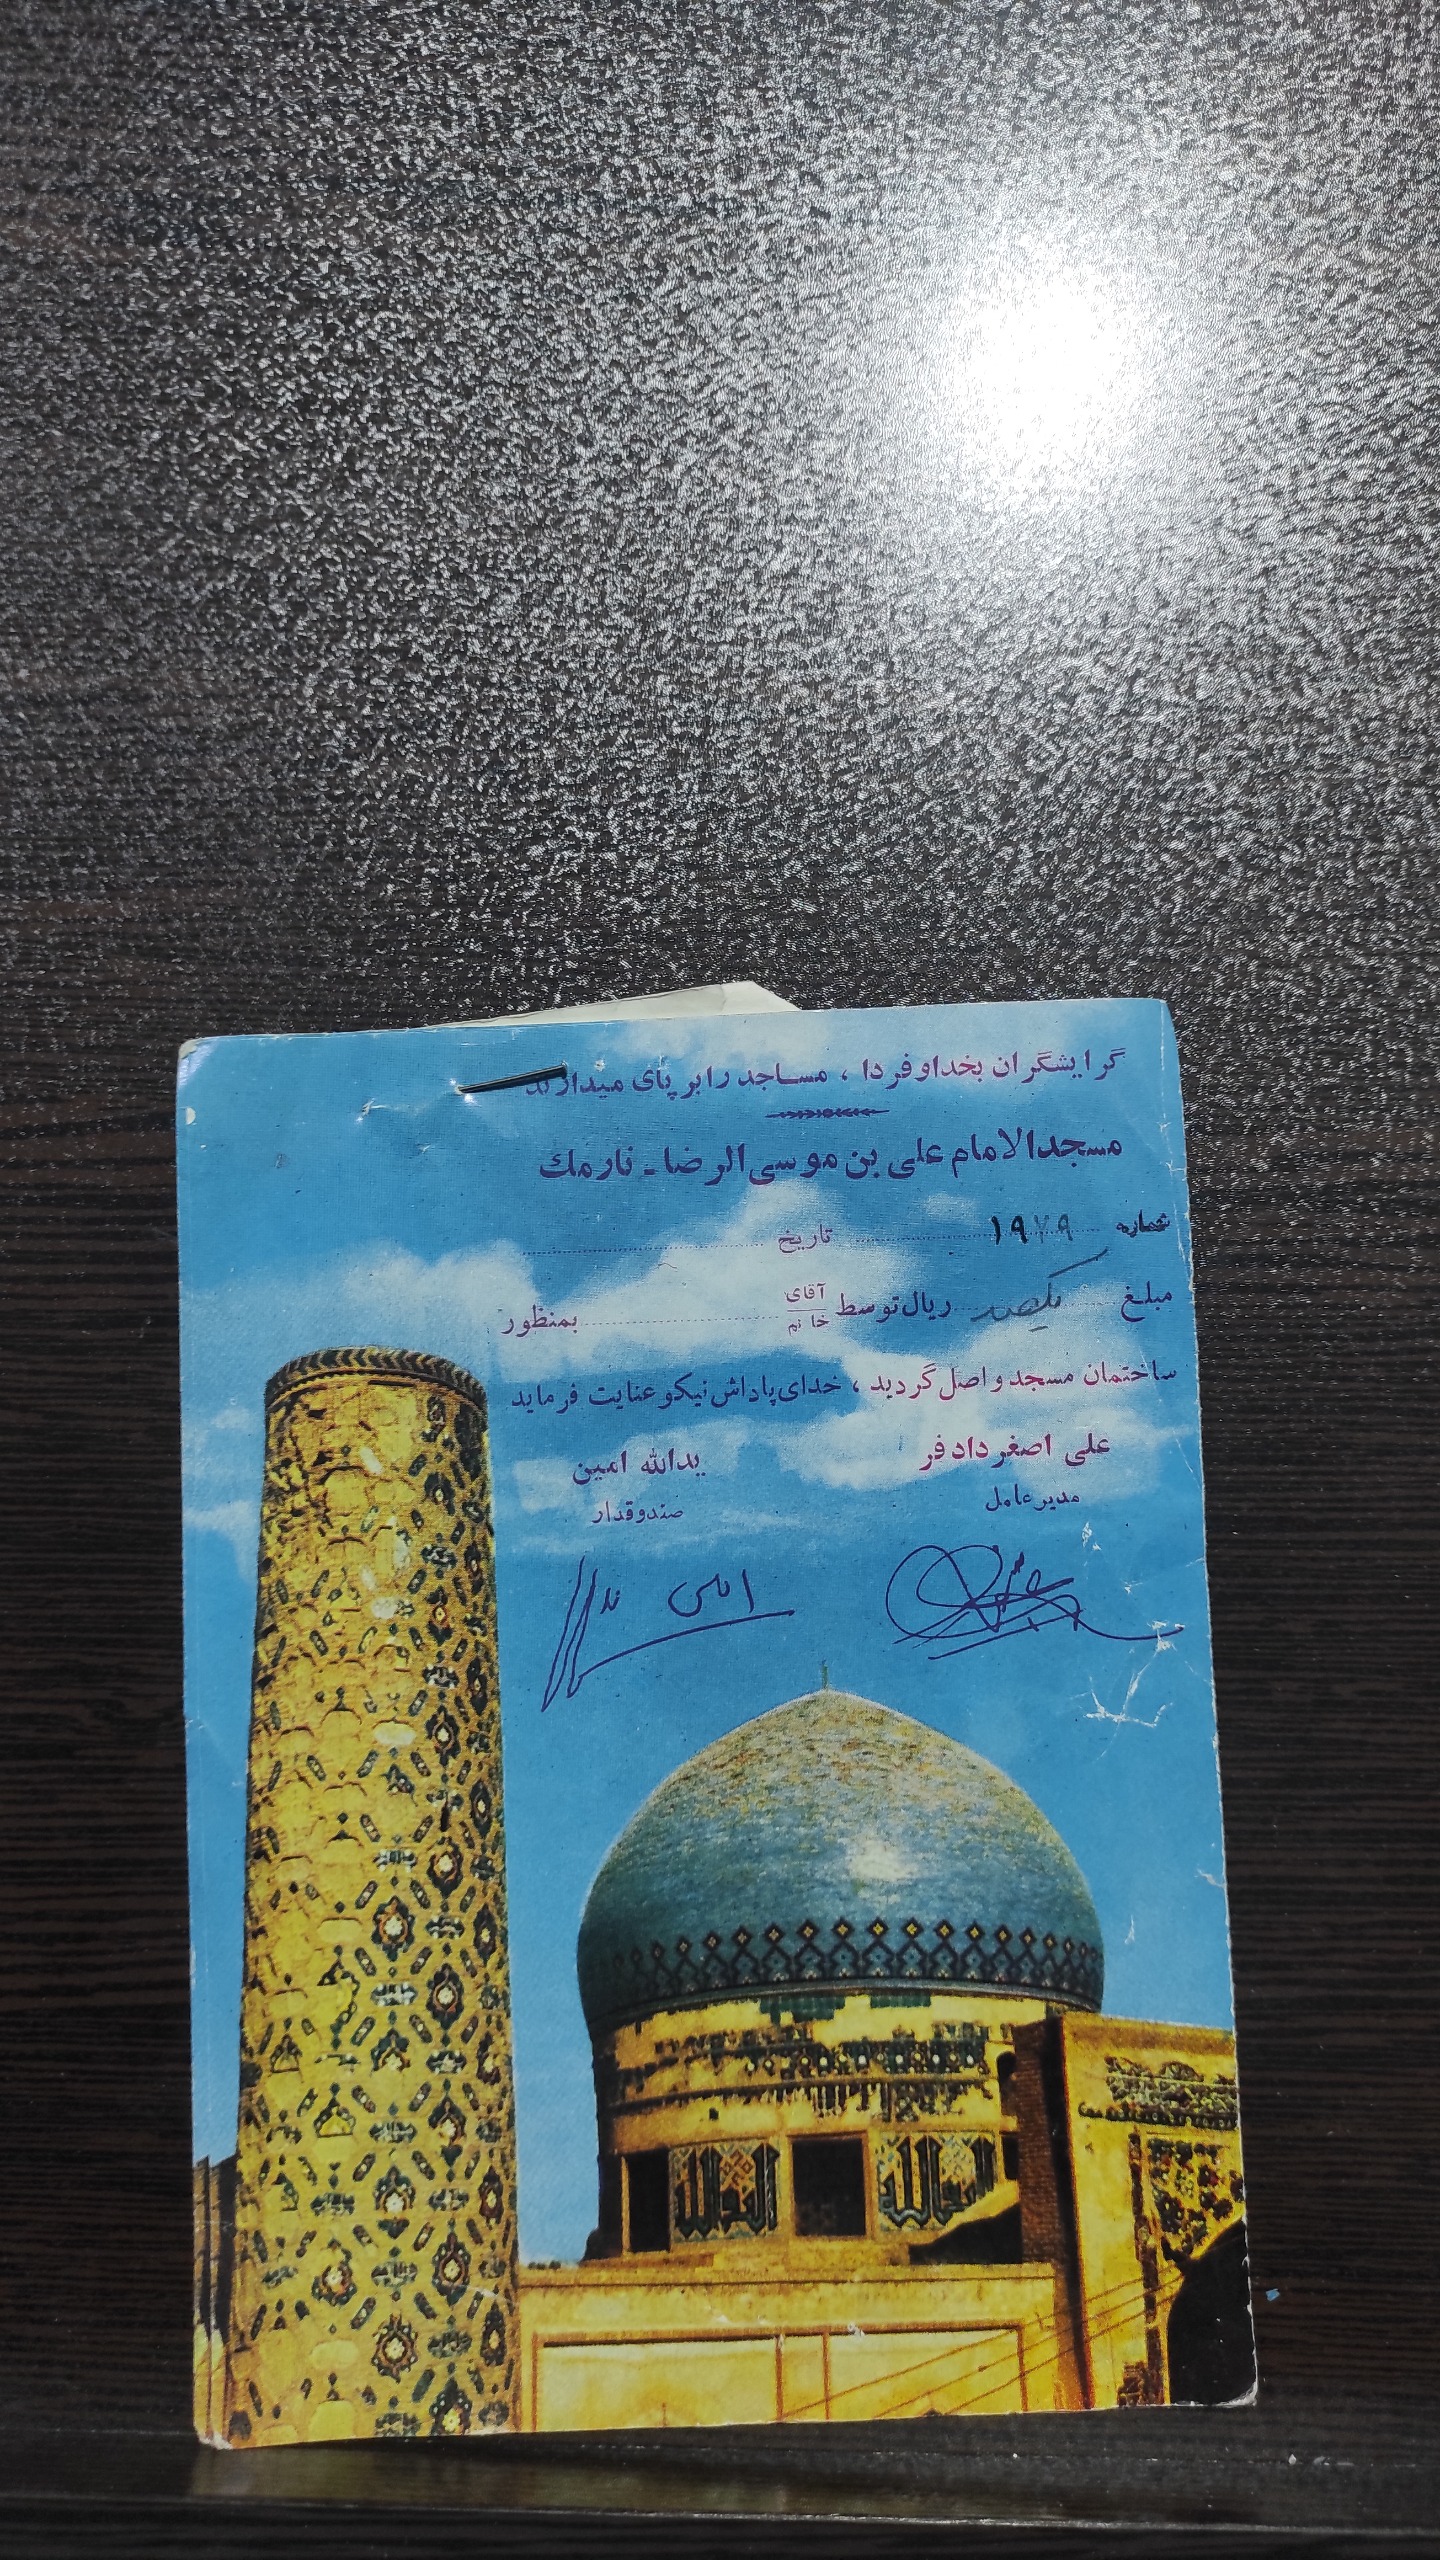 گرایشگران بخدا و فردا ، مساجد را بر پای میدارند
مسجد الامام علی بن موسی الرضا ـ نارمك
شماره ۱۹۷۹ تاریخ
مبلغ یکصد ریال توسط آقای خانم بمنظور
ساختمان مسجد واصل گردید ، خدای پاداش نیکو عنایت فرماید
علی اصغر دادفر یدالله امین
مدیر عامل صندوقدار